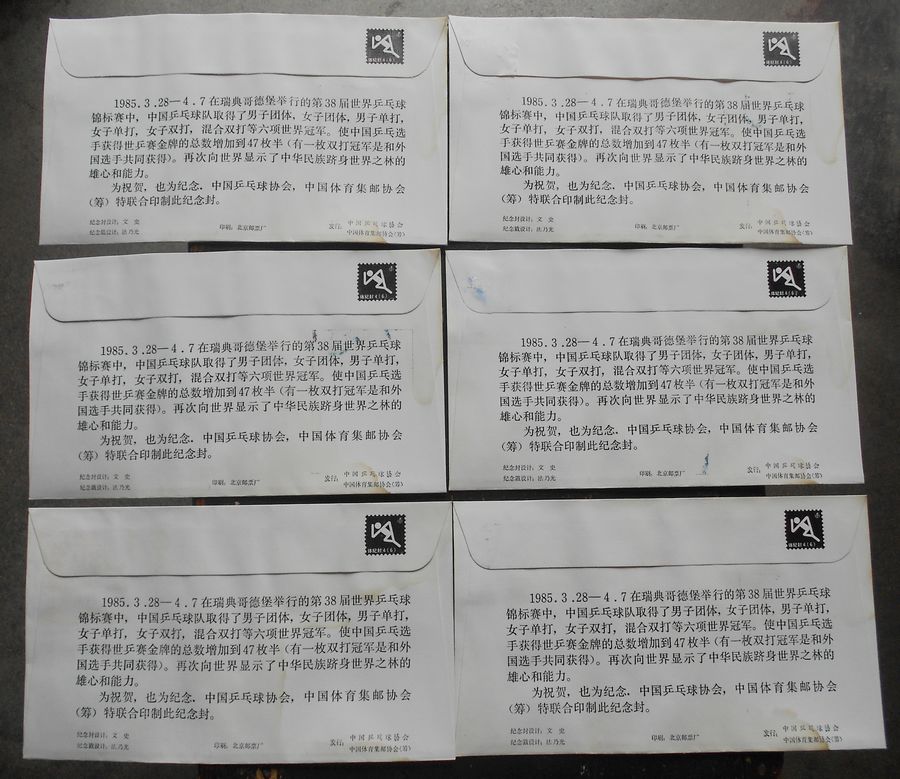 体纪封4(6)
1985.3.28—4.7在瑞典哥德堡举行的第38届世界乒乓球
锦标赛中，中国乒乓球队取得了男子团体，女子团体，男子单打，
女子单打，女子双打，混合双打等六项世界冠军。使中国乒乓选
手获得世乒赛金牌的总数增加到47枚半（有一枚双打冠军是和外
国选手共同获得）。再次向世界显示了中华民族跻身世界之林的
雄心和能力。
为祝贺，也为纪念．中国乒乓球协会，中国体育集邮协会
（筹）特联合印制此纪念封。
纪念封设计：文 史
纪念戳设计：法乃光
印刷：北京邮票厂
发行：中国乒乓球协会
中国体育集邮协会（筹）
体纪封4(6)
1985.3.28—4.7在瑞典哥德堡举行的第38届世界乒乓球
锦标赛中，中国乒乓球队取得了男子团体，女子团体，男子单打，
女子单打，女子双打，混合双打等六项世界冠军。使中国乒乓选
手获得世乒赛金牌的总数增加到47枚半（有一枚双打冠军是和外
国选手共同获得）。再次向世界显示了中华民族跻身世界之林的
雄心和能力。
为祝贺，也为纪念．中国乒乓球协会，中国体育集邮协会
（筹）特联合印制此纪念封。
纪念封设计：文 史
纪念戳设计：法乃光
印刷：北京邮票厂
发行：中国乒乓球协会
中国体育集邮协会（筹）
体纪封4(6)
1985.3.28—4.7在瑞典哥德堡举行的第38届世界乒乓球
锦标赛中，中国乒乓球队取得了男子团体，女子团体，男子单打，
女子单打，女子双打，混合双打等六项世界冠军。使中国乒乓选
手获得世乒赛金牌的总数增加到47枚半（有一枚双打冠军是和外
国选手共同获得）。再次向世界显示了中华民族跻身世界之林的
雄心和能力。
为祝贺，也为纪念．中国乒乓球协会，中国体育集邮协会
（筹）特联合印制此纪念封。
纪念封设计：文 史
纪念戳设计：法乃光
印刷：北京邮票厂
发行：中国乒乓球协会
中国体育集邮协会（筹）
体纪封4(6)
1985.3.28—4.7在瑞典哥德堡举行的第38届世界乒乓球
锦标赛中，中国乒乓球队取得了男子团体，女子团体，男子单打，
女子单打，女子双打，混合双打等六项世界冠军。使中国乒乓选
手获得世乒赛金牌的总数增加到47枚半（有一枚双打冠军是和外
国选手共同获得）。再次向世界显示了中华民族跻身世界之林的
雄心和能力。
为祝贺，也为纪念．中国乒乓球协会，中国体育集邮协会
（筹）特联合印制此纪念封。
纪念封设计：文 史
纪念戳设计：法乃光
印刷：北京邮票厂
发行：中国乒乓球协会
中国体育集邮协会（筹）
体纪封4(6)
1985.3.28—4.7在瑞典哥德堡举行的第38届世界乒乓球
锦标赛中，中国乒乓球队取得了男子团体，女子团体，男子单打，
女子单打，女子双打，混合双打等六项世界冠军。使中国乒乓选
手获得世乒赛金牌的总数增加到47枚半（有一枚双打冠军是和外
国选手共同获得）。再次向世界显示了中华民族跻身世界之林的
雄心和能力。
为祝贺，也为纪念．中国乒乓球协会，中国体育集邮协会
（筹）特联合印制此纪念封。
纪念封设计：文 史
纪念戳设计：法乃光
印刷：北京邮票厂
发行：中国乒乓球协会
中国体育集邮协会（筹）
体纪封4(6)
1985.3.28—4.7在瑞典哥德堡举行的第38届世界乒乓球
锦标赛中，中国乒乓球队取得了男子团体，女子团体，男子单打，
女子单打，女子双打，混合双打等六项世界冠军。使中国乒乓选
手获得世乒赛金牌的总数增加到47枚半（有一枚双打冠军是和外
国选手共同获得）。再次向世界显示了中华民族跻身世界之林的
雄心和能力。
为祝贺，也为纪念．中国乒乓球协会，中国体育集邮协会
（筹）特联合印制此纪念封。
纪念封设计：文 史
纪念戳设计：法乃光
印刷：北京邮票厂
发行：中国乒乓球协会
中国体育集邮协会（筹）